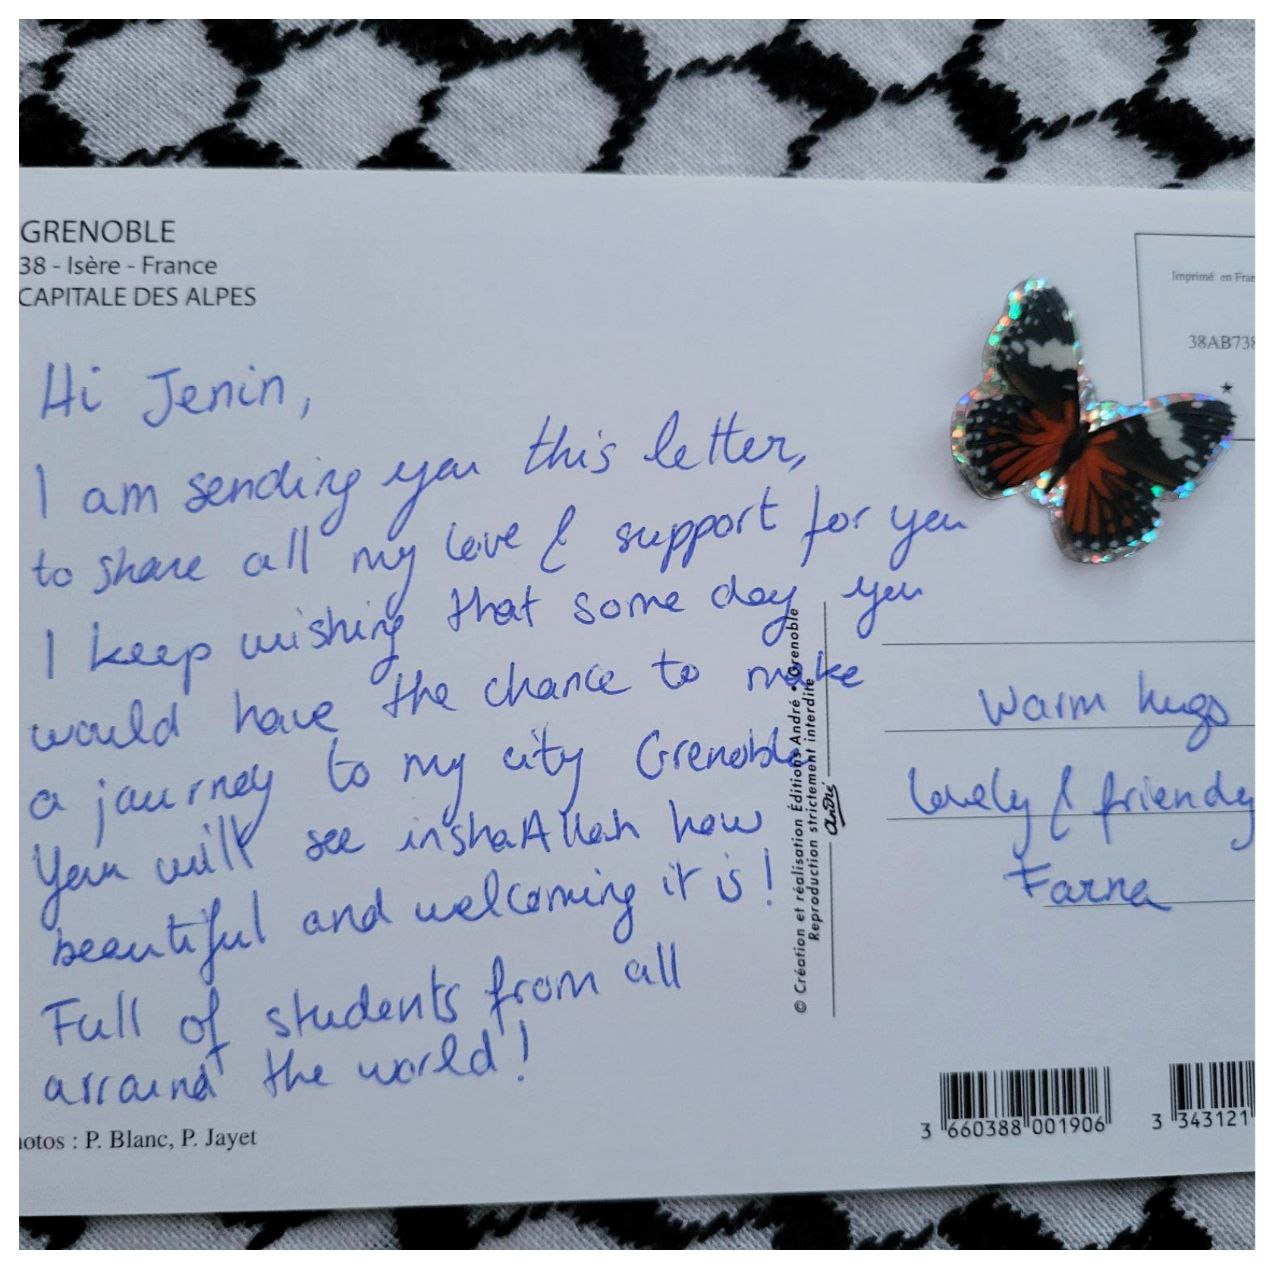 GRENOBLE
38 - Isère - France
CAPITALE DES ALPES
Hi Jenin,
I am sending you this letter,
to share all my love & support for you
I keep wishing that some day you
would have the chance to make
a journey to my city Grenoble
You will see inshaAllah how
beautiful and welcoming it is!
Full of students from all
arround the world!
otos : P. Blanc, P. Jayet
© Création et réalisation Éditions André • Grenoble
Reproduction strictement interdite
André
Imprimé en Fran
38AB738
Warm hugs
lovely & friendy
3 660388 001906
3 343121